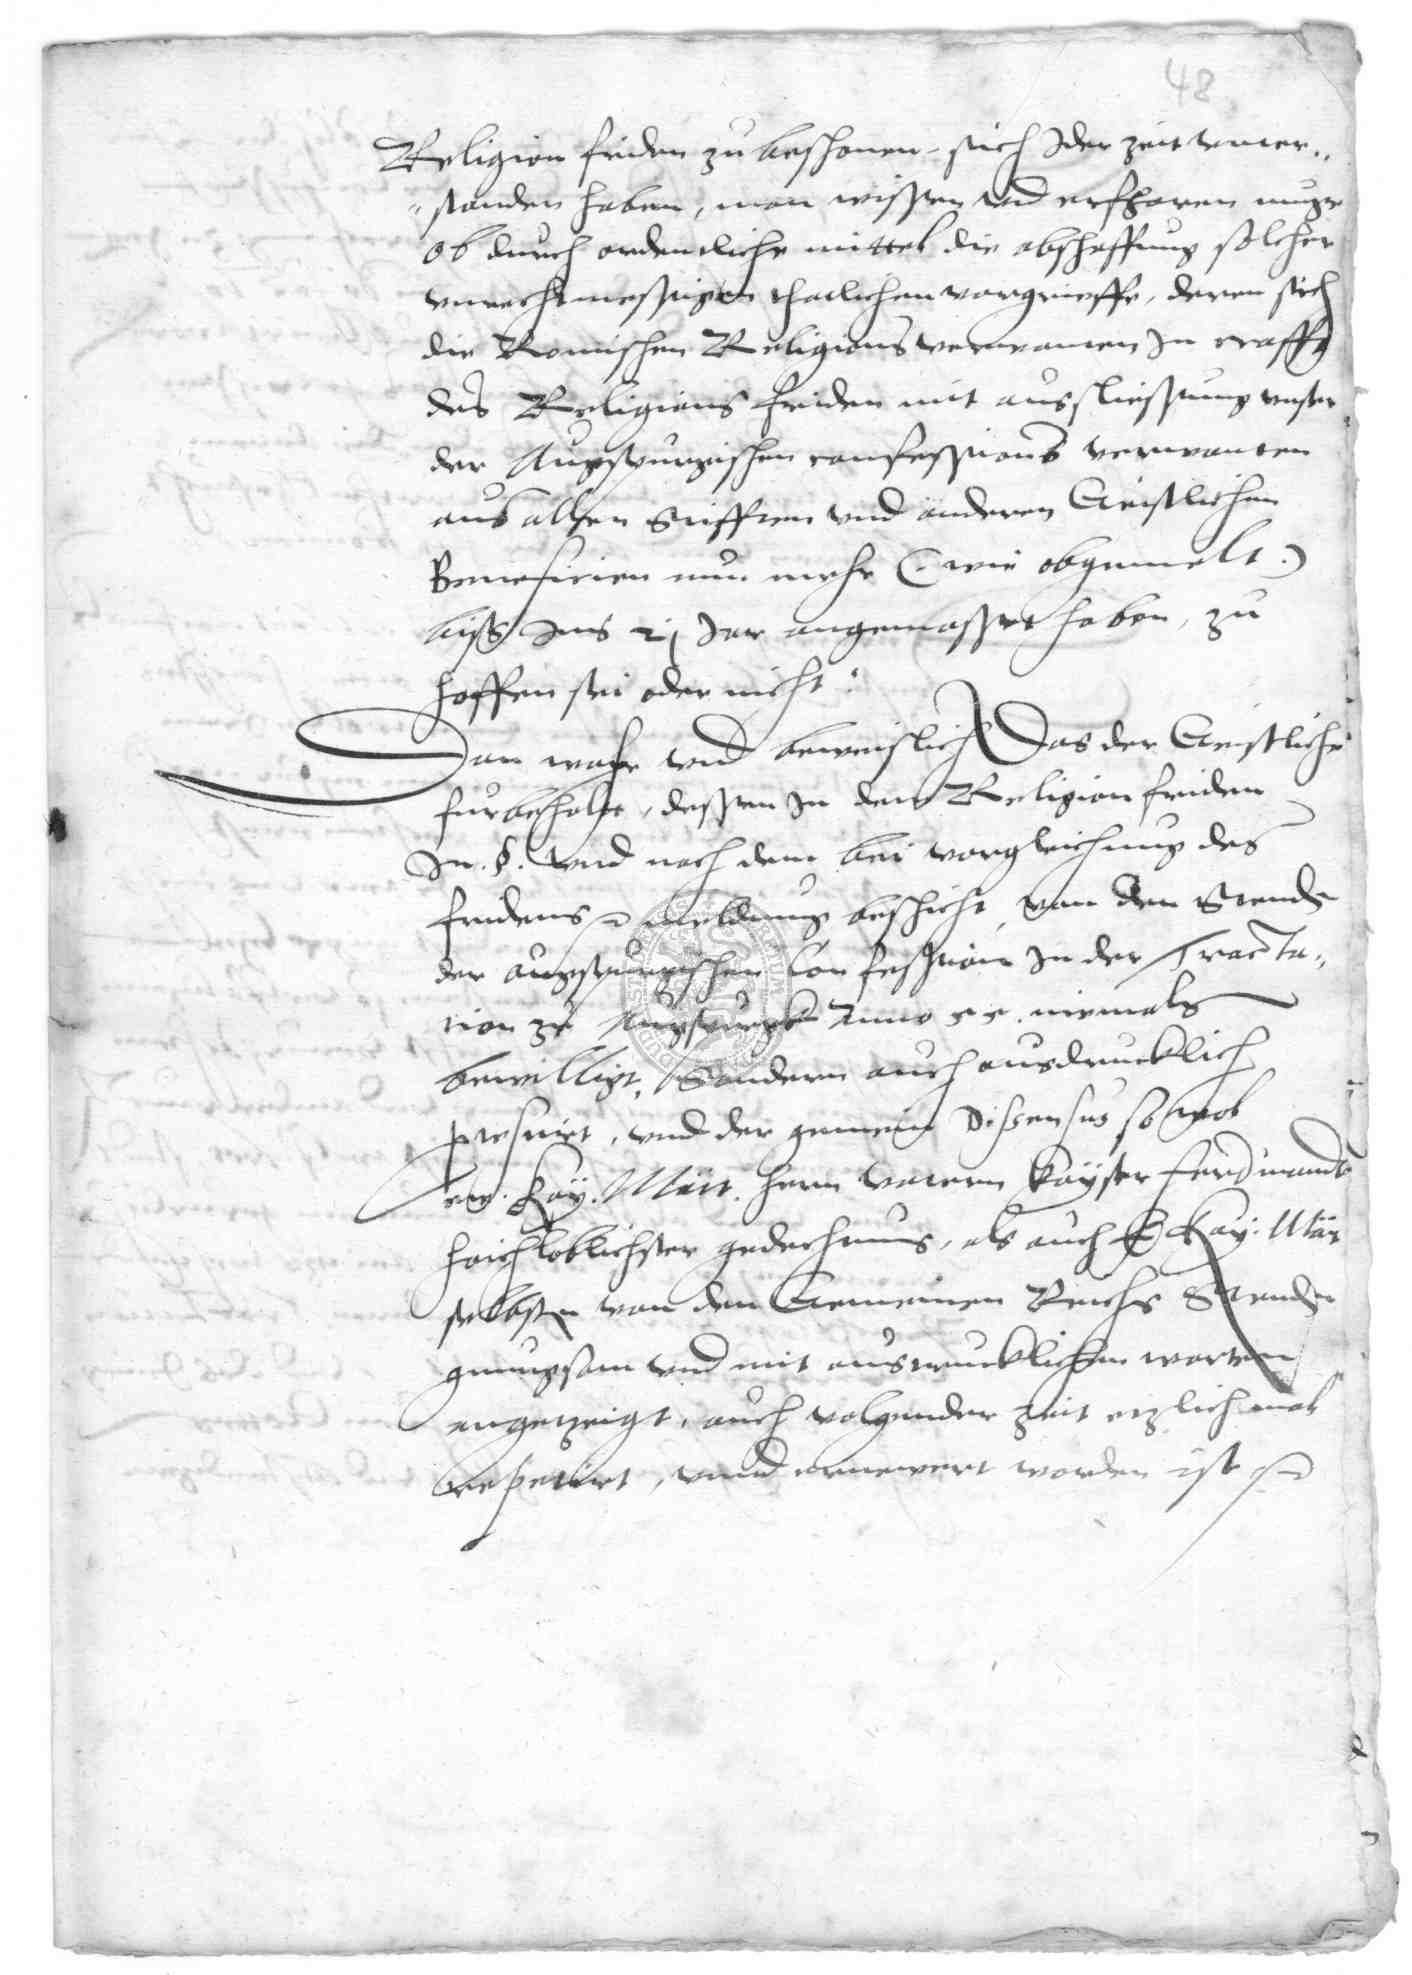 48
Religion friden zu beschonen, sich Jder zeit vnter„
„standen haben, man wissen vnd erfharen muge
ob durch ordendliche mittel die abschaffung solcher
vnrechtmessigen thatlichen vorgrieffe, deren sich
die Romischen Religions verwanten In crafft
des Religions friden mit ausschliessung vnser
der Augspurgischen confessions verwanten
aus allen Stifften vnd anderen Geistlichen
Beneficien nun mehr (: wie obgemelt :)
biss Ins 21 Jar angemasset haben, zu
hoffen sei oder nicht:
Dan wahr vnd beweislich Das der Geistliche
furbehalt, dessen In dem Religion friden
In .§. vnd nach dem bei vorgleichung des
fridens meldung beschicht, von den Stende
der augspurgischen Confession In der Tracta„
tion zu Augspurgk Anno 55. niemals
bewilligt, Sondern auch ausdrucklich
, vnd der gemein Dissensus so wol
ew. Kay. Matt. hern vatern Kayser Ferdinands
hochloblichster gedechtnus, als auch E Kay. Mat
selbsten von den Gemeinen Reichs Stenden
gnugsam vnd mit austrucklichen worten
angetzeigt, auch volgender zeit etzlich mal
repetirt, vnnd ernewert worden ist